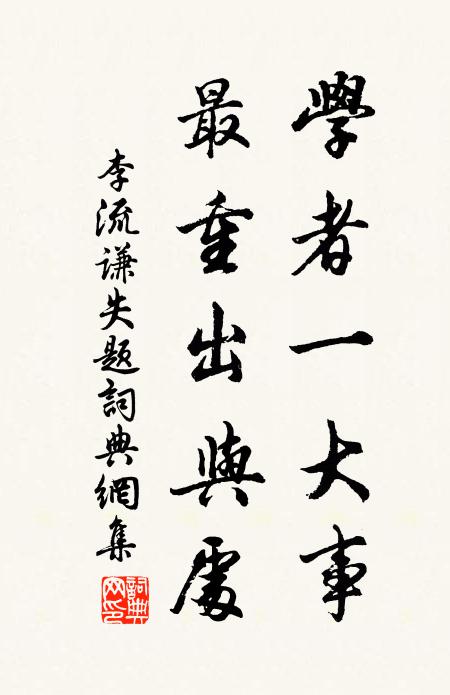 學者一大事
最重出與處
李流谦失题詞典網集
詞典网印